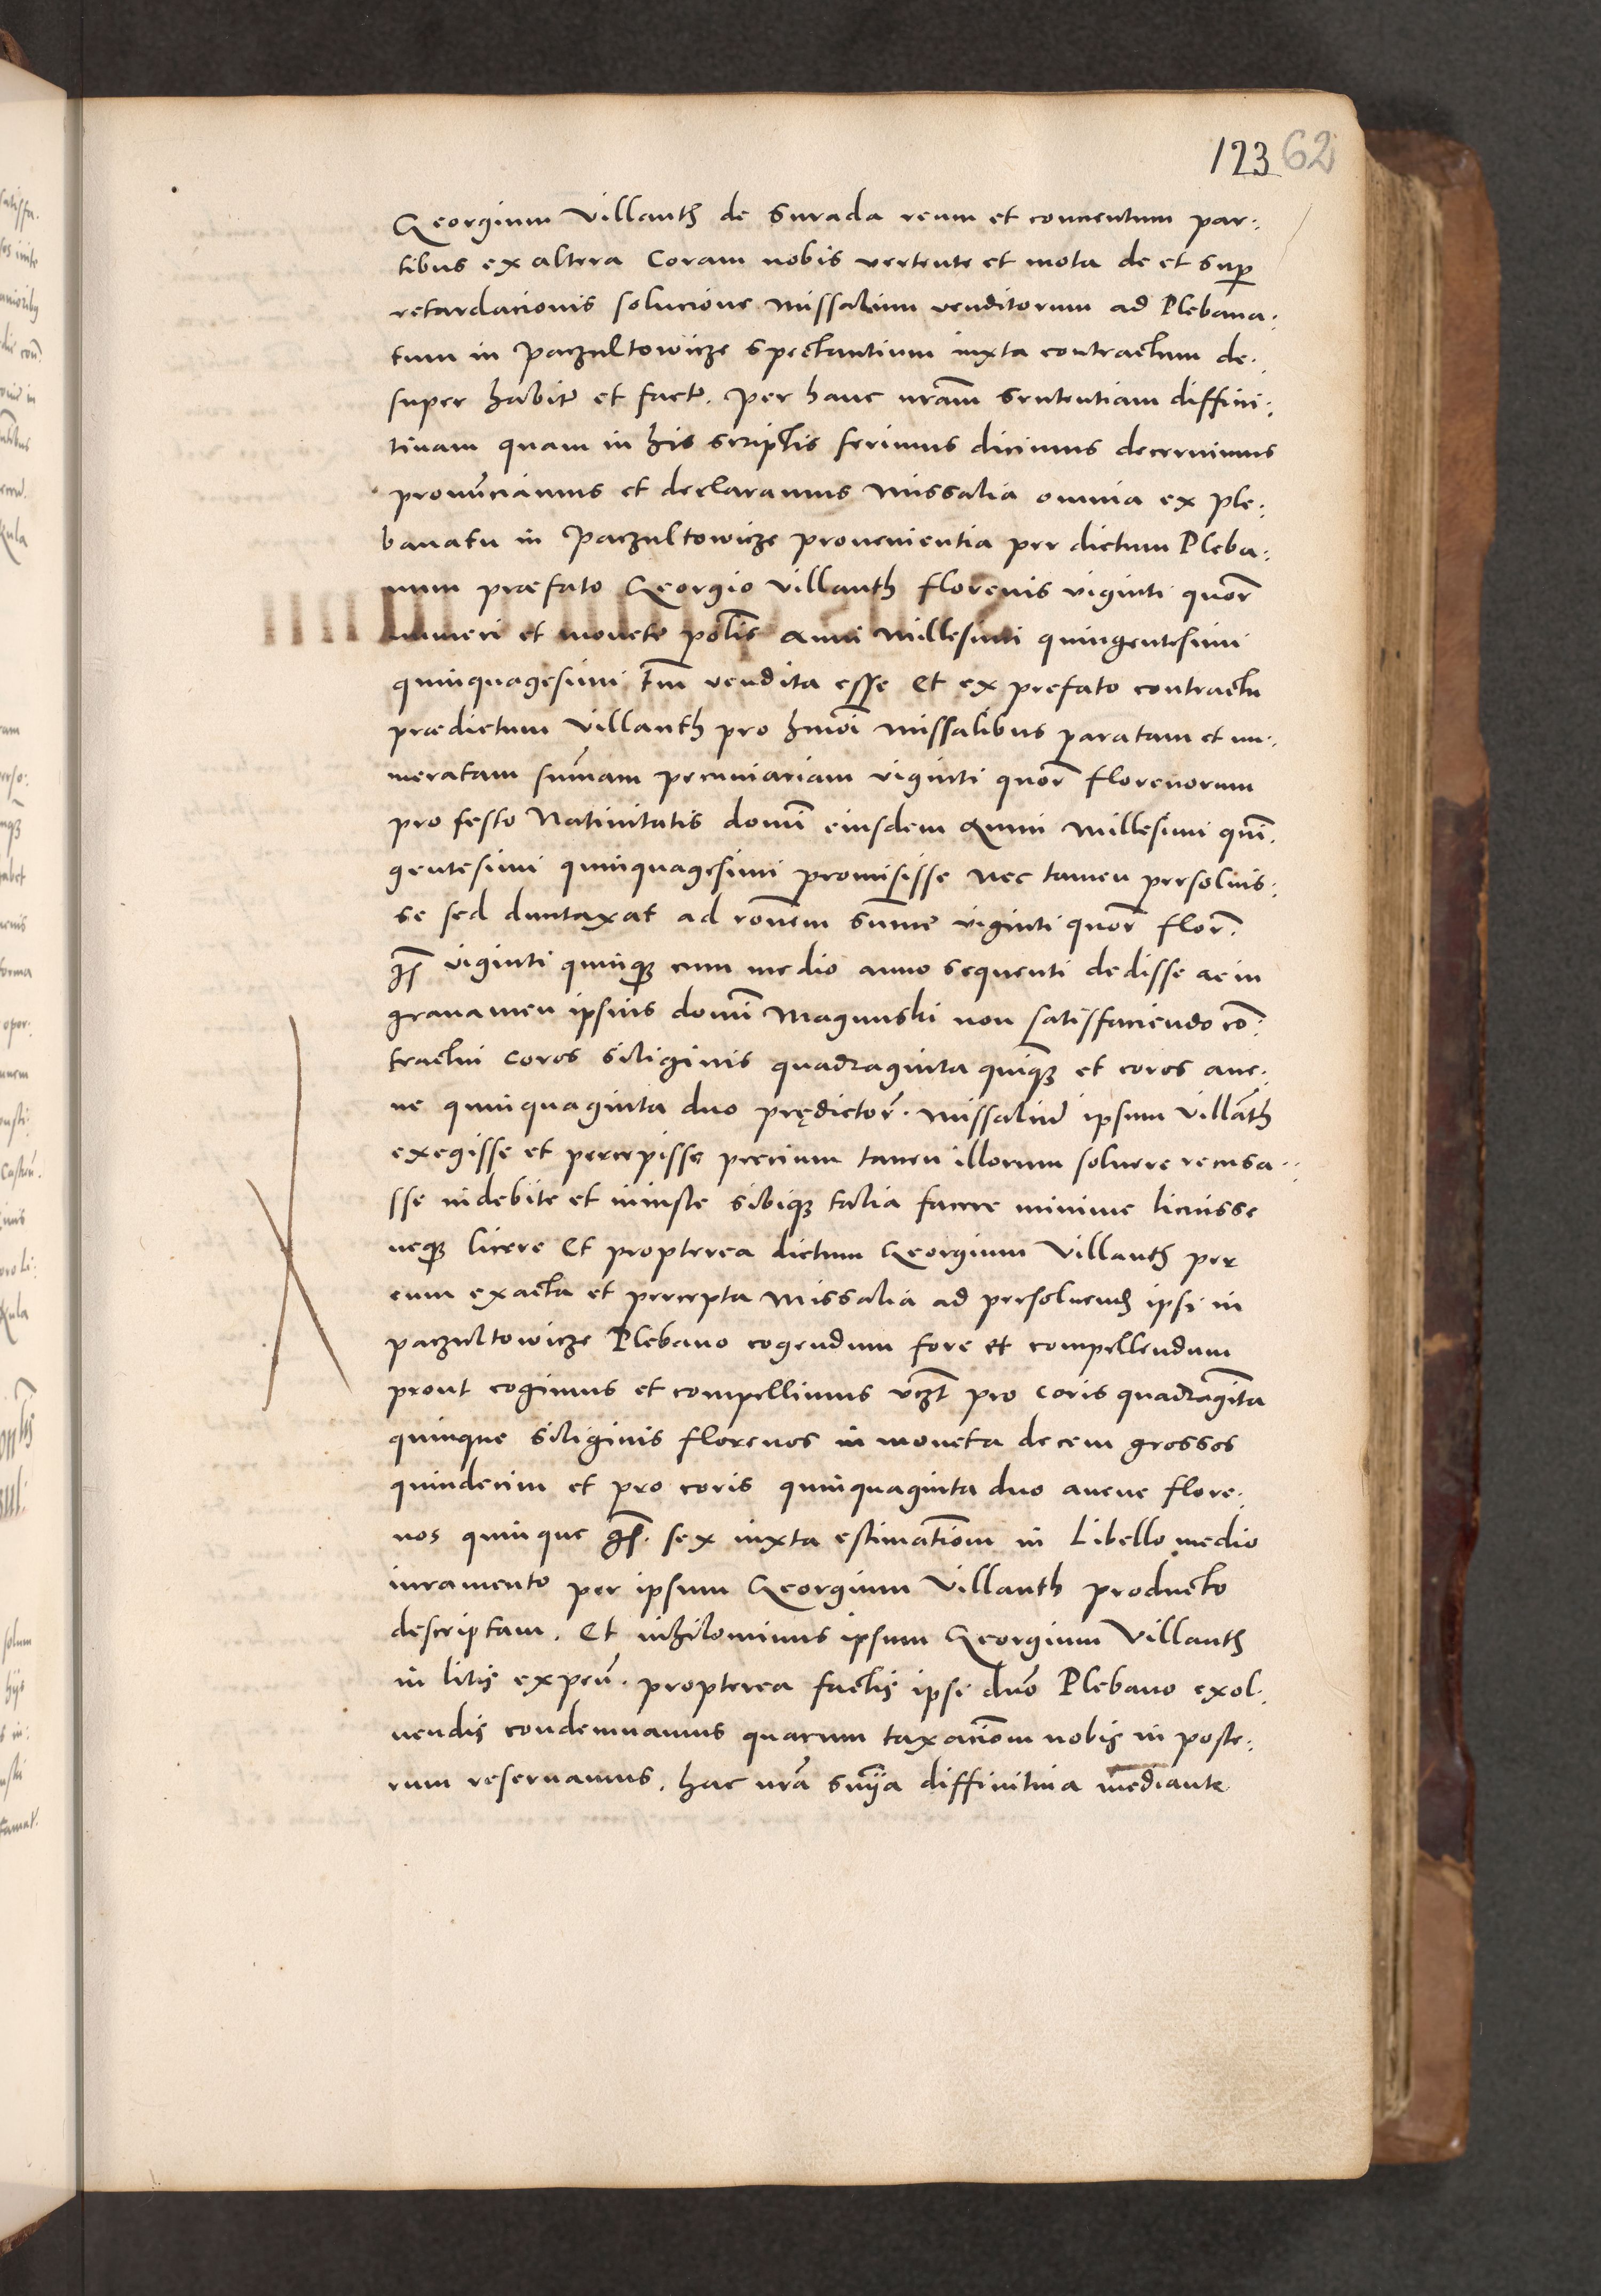 123 62
Georgium Villanth de Surada reum et conuentum par:
tibus ex altera Coram nobis vertente et mota de et sup
retardacionis solucione missalium venditorum ad Plebana:
tum in Paczultowicze spectantium iuxta contractum de:
super habitū et factū. Per hanc nrām sententiam diffini:
tiuam quam in his scriptis ferimus dicimus decernimus
pronūciamus et declaramus Missalia omnia ex ple:
banatu in Paczultowicze prouenientia per dictum Pleba:
num præfato Georgio Villanth florenis viginti quor̄
numeri et monete polīs Anni Millesimi quingentesimi
quinquagesimi tm̄ vendita esse Et ex prefato contractu
prædictum Villanth pro hmōi missalibus paratam et nu:
meratam sum̄am pecuniariam viginti quor̄ florenorum
pro festo Natiuitatis domī eiusdem Anni Millesimi quī:
gentesimi quinquagesimi promisisse nec tamen persoluis:
se sed duntaxat ad ronēm sum̄e viginti quor̄ flor̄.
gr̄ viginti quinqꝫ cum medio anno sequenti dedisse ac in
grauamen ipsius domī Magnuski non satisfaciendo cō:
tractui coros siliginis quadraginta quīqꝫ et coros aue:
ne quinquaginta duo prędictor̄. missaliū ipsum Villāth
exegisse et percepisse precium tamen illorum soluere recusa:
sse indebite et iniuste sibiqꝫ talia facere minime licuisse
neqꝫ licere Et propterea dictum Georgium Villanth per
eum exacta et percepta Missalia ad persoluend ipsi in
paczultowicze Plebano cogendum fore et compellendum
prout cogimus et compellimus vcꝫt pro coris quadragīta
quinque siliginis florenos in moneta decem grossos
quindecim et pro coris quinquaginta duo auene flore:
nos quinque gr̄. sex iuxta estimatiōem in Libello medio
iuramento per ipsum Georgium Villanth producto
descriptam. Et nihilominus ipsum Georgium Villanth
in litis expeñ. propterea factis ipsi dnō Plebano exol:
uendis condemnamus quarum taxaciōem nobis in poste:
rum reseruamus. hac nrā sn̄ia diffinitiua mediante